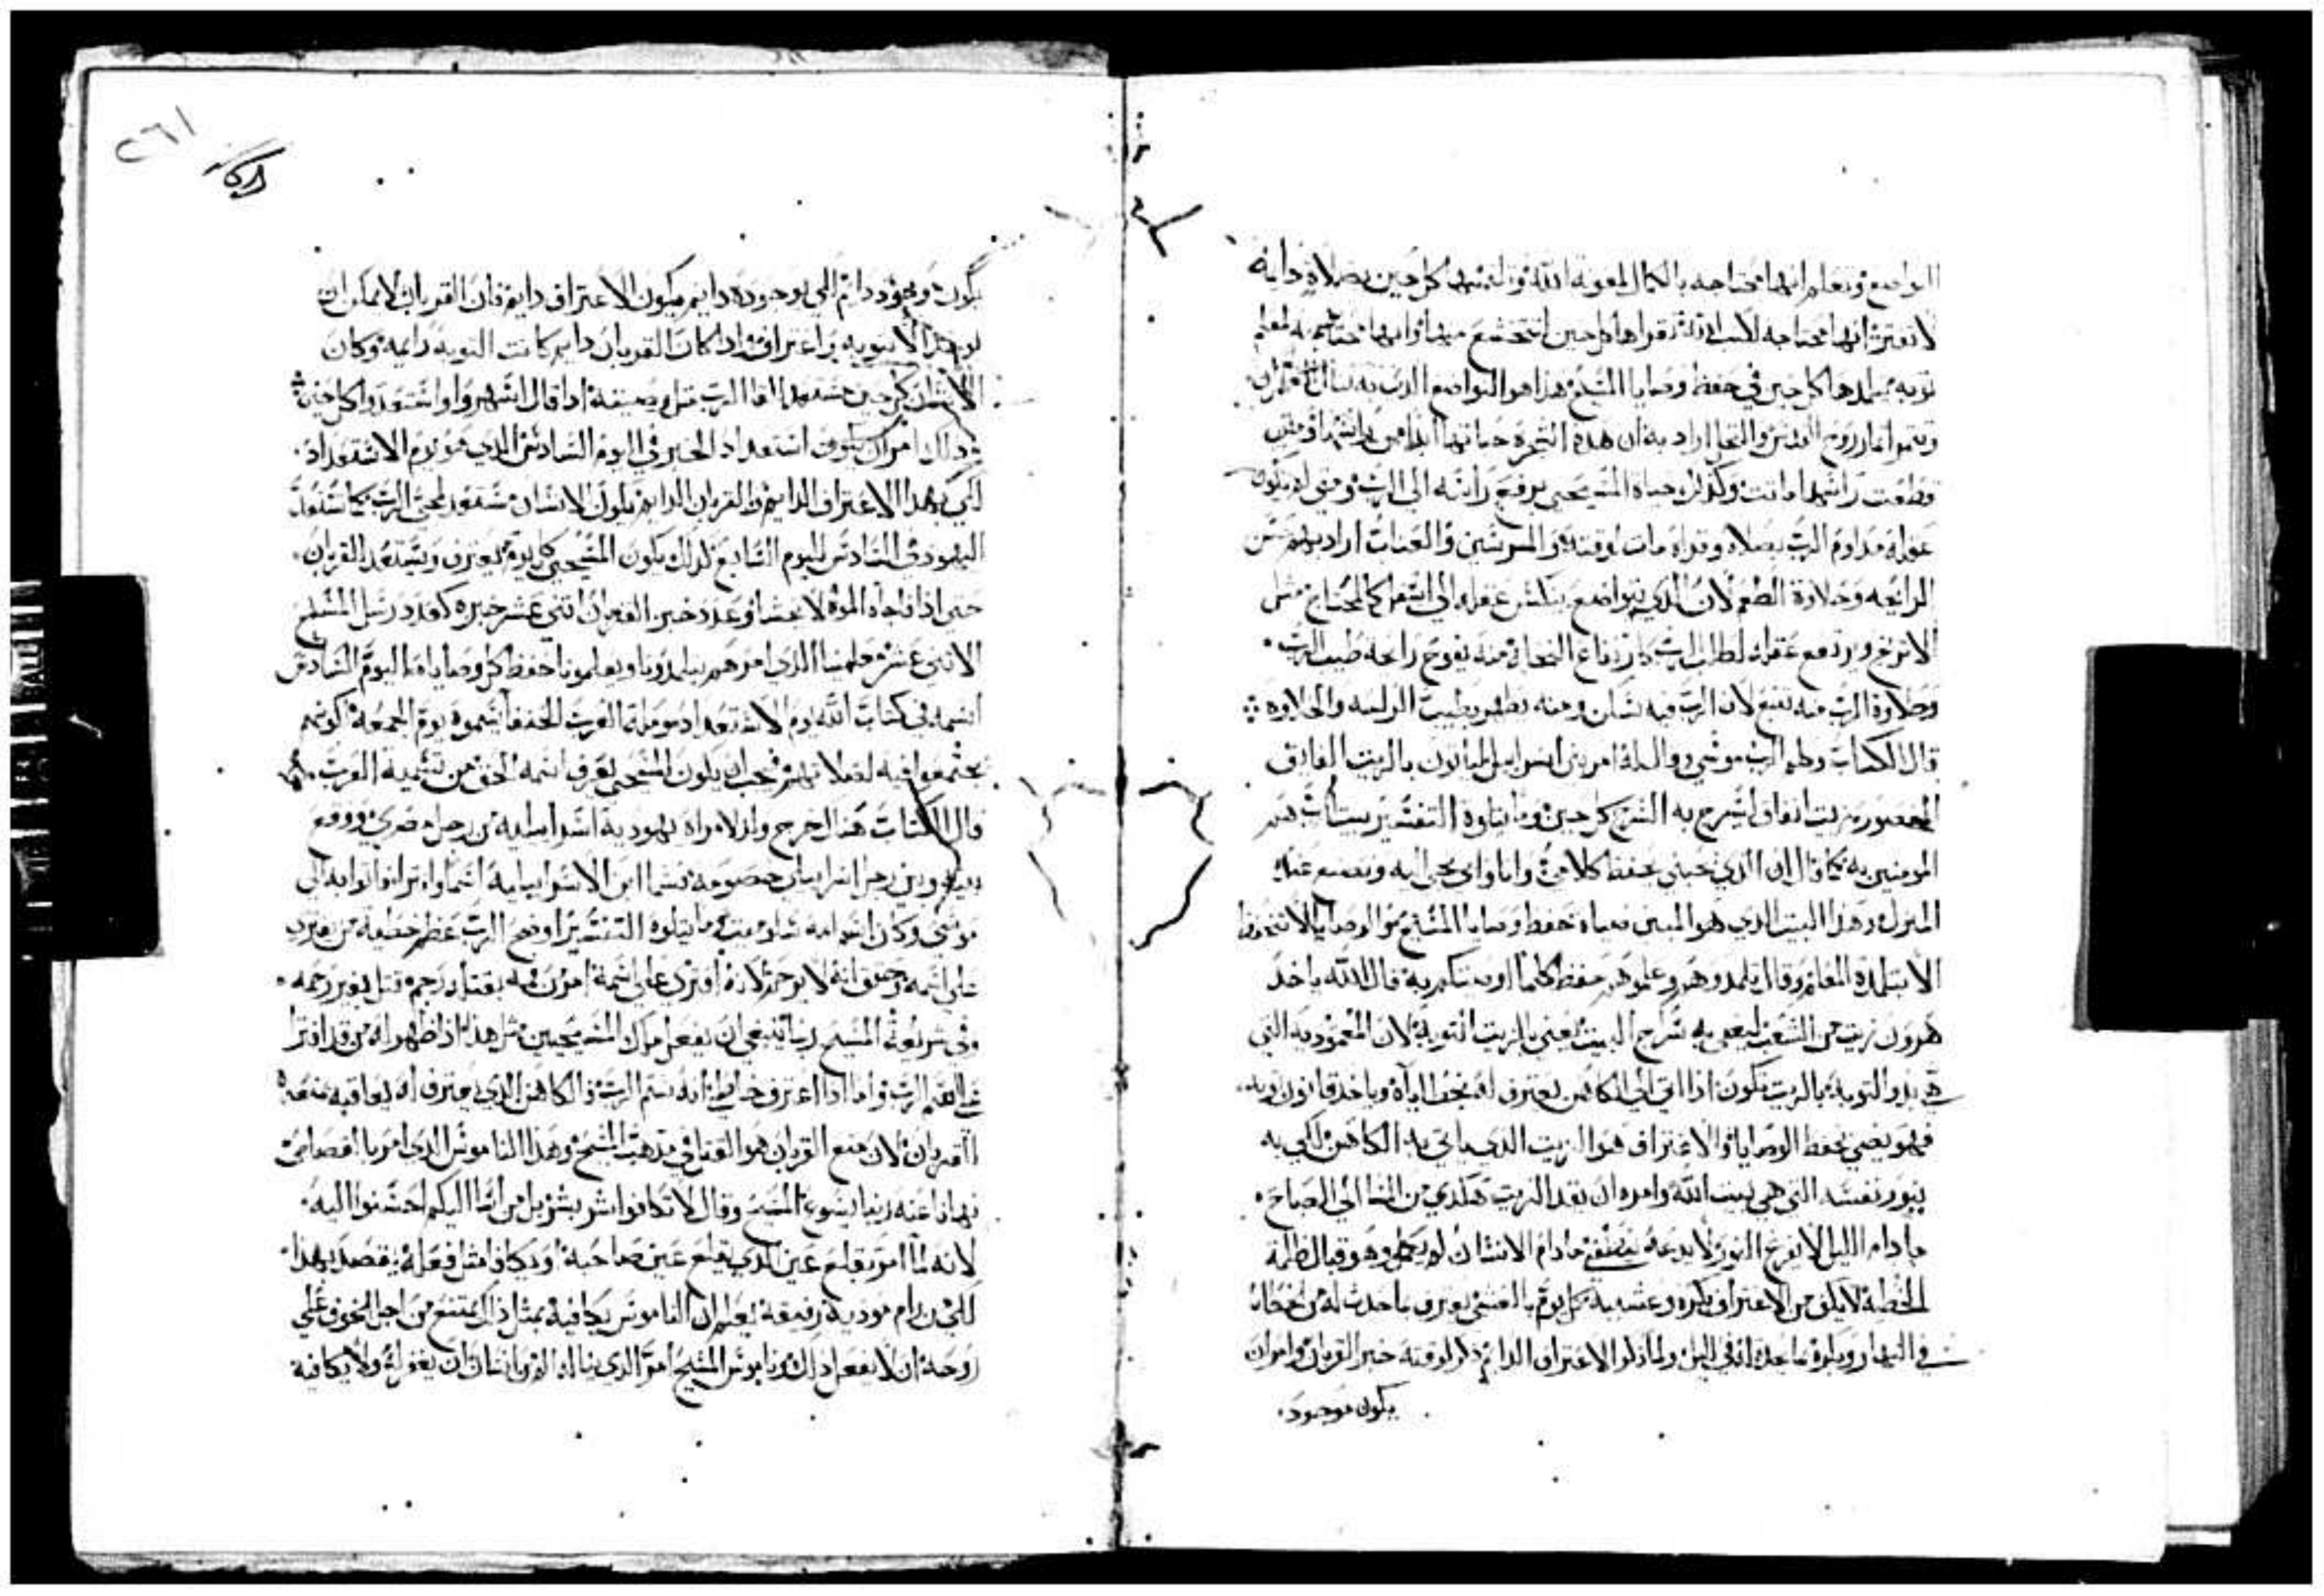 التواضع وتعلم انها محتاجه بالكمال لمعونة الله كل حين بصلاة دايمة
لا تفتر انها محتاجه لكتب الله تقراها كل حين لتخشع منها وانها محتاجه لمعلم
توبه يتلمدها كل حين في حفظ وصايا المسيح هذا هو التواضع الذي به ينال
روح القدس والنخل اراد به ان هذه الشجره حياتها
قطعت راسها ماتت وكذلك حياة المسيحي برفع راسه الى الرب ومتى لم يكون
عقله مداوم الرب بصلاه وقراه مات لوقته والمرسين والعنبات اراد بهم حسن
الرايحه وحلاوة الطعم لان الذي يتواضع ينكس عقله الى اسفل كالمحتاج مثل
الاترنج ويرتفع عقله لطلب الرب كارتفاع النخل منه يفوح رايحة طيب الرب
وحلاوة الرب منه تنبع لان الرب فيه ساكن ومنه يظهر بطيب الرايحه والحلاوه
قال الكتاب وكلم الرب موسى وقال له امر بني اسراييل لياتون بالزيت الفايق
المعصور زيت انفاق ليسرج به السرج كل حين وما يتلوه التفسير بيت الله هم
المومنين به كما قال ان الذي يحبني يحفظ كلامي وانا وابي نجي اليه ونصنع عنده
المنزل وهذا البيت الذي هو المبني بمياه حفظ وصايا المسيح والوصايا لا تنحفظ
الا بتلمدة المعلم وقال تلمدوهم وعلموهم حفظ كلما اوصيتكم به قال الله ياخد
هرون زيت من الشعب ليعمر به سرج البيت يعني بالزيت التوبة لان المعمودية التي
هي بدو التوبة بالزيت تكون اذا اتى الى الكاهن يعترف له بخطاياه وياخد قانون توبه
فهو يضي بحفظ الوصايا والاعتراف هو الزيت الذي ياتي به الكاهن لكي به
ينور نفسه التي هي بيت الله وامره ان يقد الزيت هكذي من المسا الى الصباح
ما دام الليل لا يفرغ النور لا يدعه ينطفي ما دام الانسان لم يكمل وهو قبال ظلمة
الخطية لا يكف من الاعتراف بكره وعشيه كل يوم بالعشي يعترف بما حدث له من خطايا
في النهار وبكرة ما حدث له في الليل ولما ذكر الاعتراف الدايم ذكر لوقته خبز القربان وامر ان
يكون موجود
٢٦١
يكون موجود دايم الى بوجوده دايم يكون الاعتراف دايم فان القربان لا يمكن ان
يوخد الا بتوبه واعتراف واذا كان القربان دايم كانت التوبه دايمه وكان
الانسان كل حين مستعد للقا الرب مثل وصيته اذ قال اسهروا واستعدوا كل حين
وذلك امر ان يكون استعداد الخبز في اليوم السادس الذي هو يوم الاستعداد
لكي بهذا الاعتراف الدايم والقربان الدايم يكون الانسان مستعد لمجي الرب كما تستعد
اليهود في السادس لليوم السابع كذلك يكون المسيحي كل يوم يعترف ويستعد للقربان
حتى اذا فاجاه الموت لا يخشا وعدد خبز القربان اثنى عشر خبزه كعدد رسل المسيح
الاثنى عشر معلمينا الذي امرهم يتلمدونا ويعلمونا حفظ كل وصاياه اما اليوم السادس
اسمه في كتاب الله يوم الاستعداد وملة العرب الحنفا سموه يوم الجمعة لكونهم
يجتمعوا فيه لصلاتهم فيجب ان يكون المسيحي يعرف اسمه الحق من تسمية العرب
قال الكتاب هنا خرج ولد لامراه يهوديه اسراييليه من رجل مصري ووقع
بينه وبين رجل اسراييلي خصومه فسما ابن الاسراييليه اسم الله وافترا فاتوا به الى
موسى وكان اسم امه شلوميت وما يتلوه التفسير اوضح الرب عظم خطية من يفتري
على اسمه وحقق انه لا يرحم لانه افترى على اسمه امر ان يقتله رجم قتل بغير رحمه
وفي شريعة المسيح ربنا ينبغي ان يفعل ملك المسيحيين مثل هذا اذا ظهر انه من قد افترا
على اسم الرب واما اذا اعترف خاطي انه شتم الرب فالكاهن الذي يعترف له يعاقبه بمنعه
القربان لان منع القربان هو القتل في مذهب المسيح وهذا الناموس الذي امر بالقصاص
نهانا عنه ربنا يسوع المسيح وقال لا تكافوا شر بشر بل من اسا اليكم احسنوا اليه
لانه لما امر بقلع عين الذي يقلع عين صاحبه ويكافا مثل فعله يقصد بهذا
لكي من رام موذية رفيقه يعلم ان الناموس يكافيه بمثل ذلك يمتنع من اجل الخوف على
روحه ان لا يفعل ذلك وناموس المسيح امر الذي ناله الم من انسان ان يغفر له ولا يكافيه